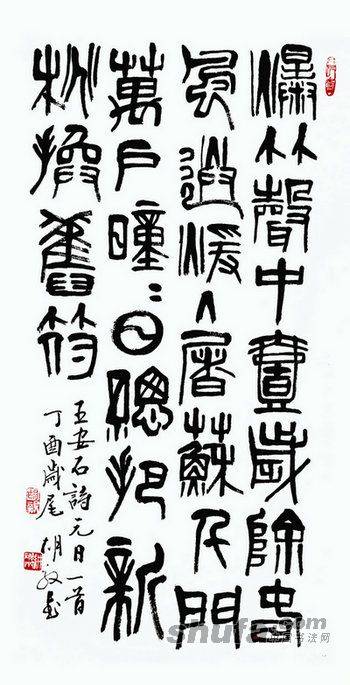 爆竹聲中壹歲除春
風送暖入屠蘇千門
萬戶曈〻日總把新
桃換舊符
王安石詩元日一首
丁酉歲尾 胡
shufa.com
中国书法网